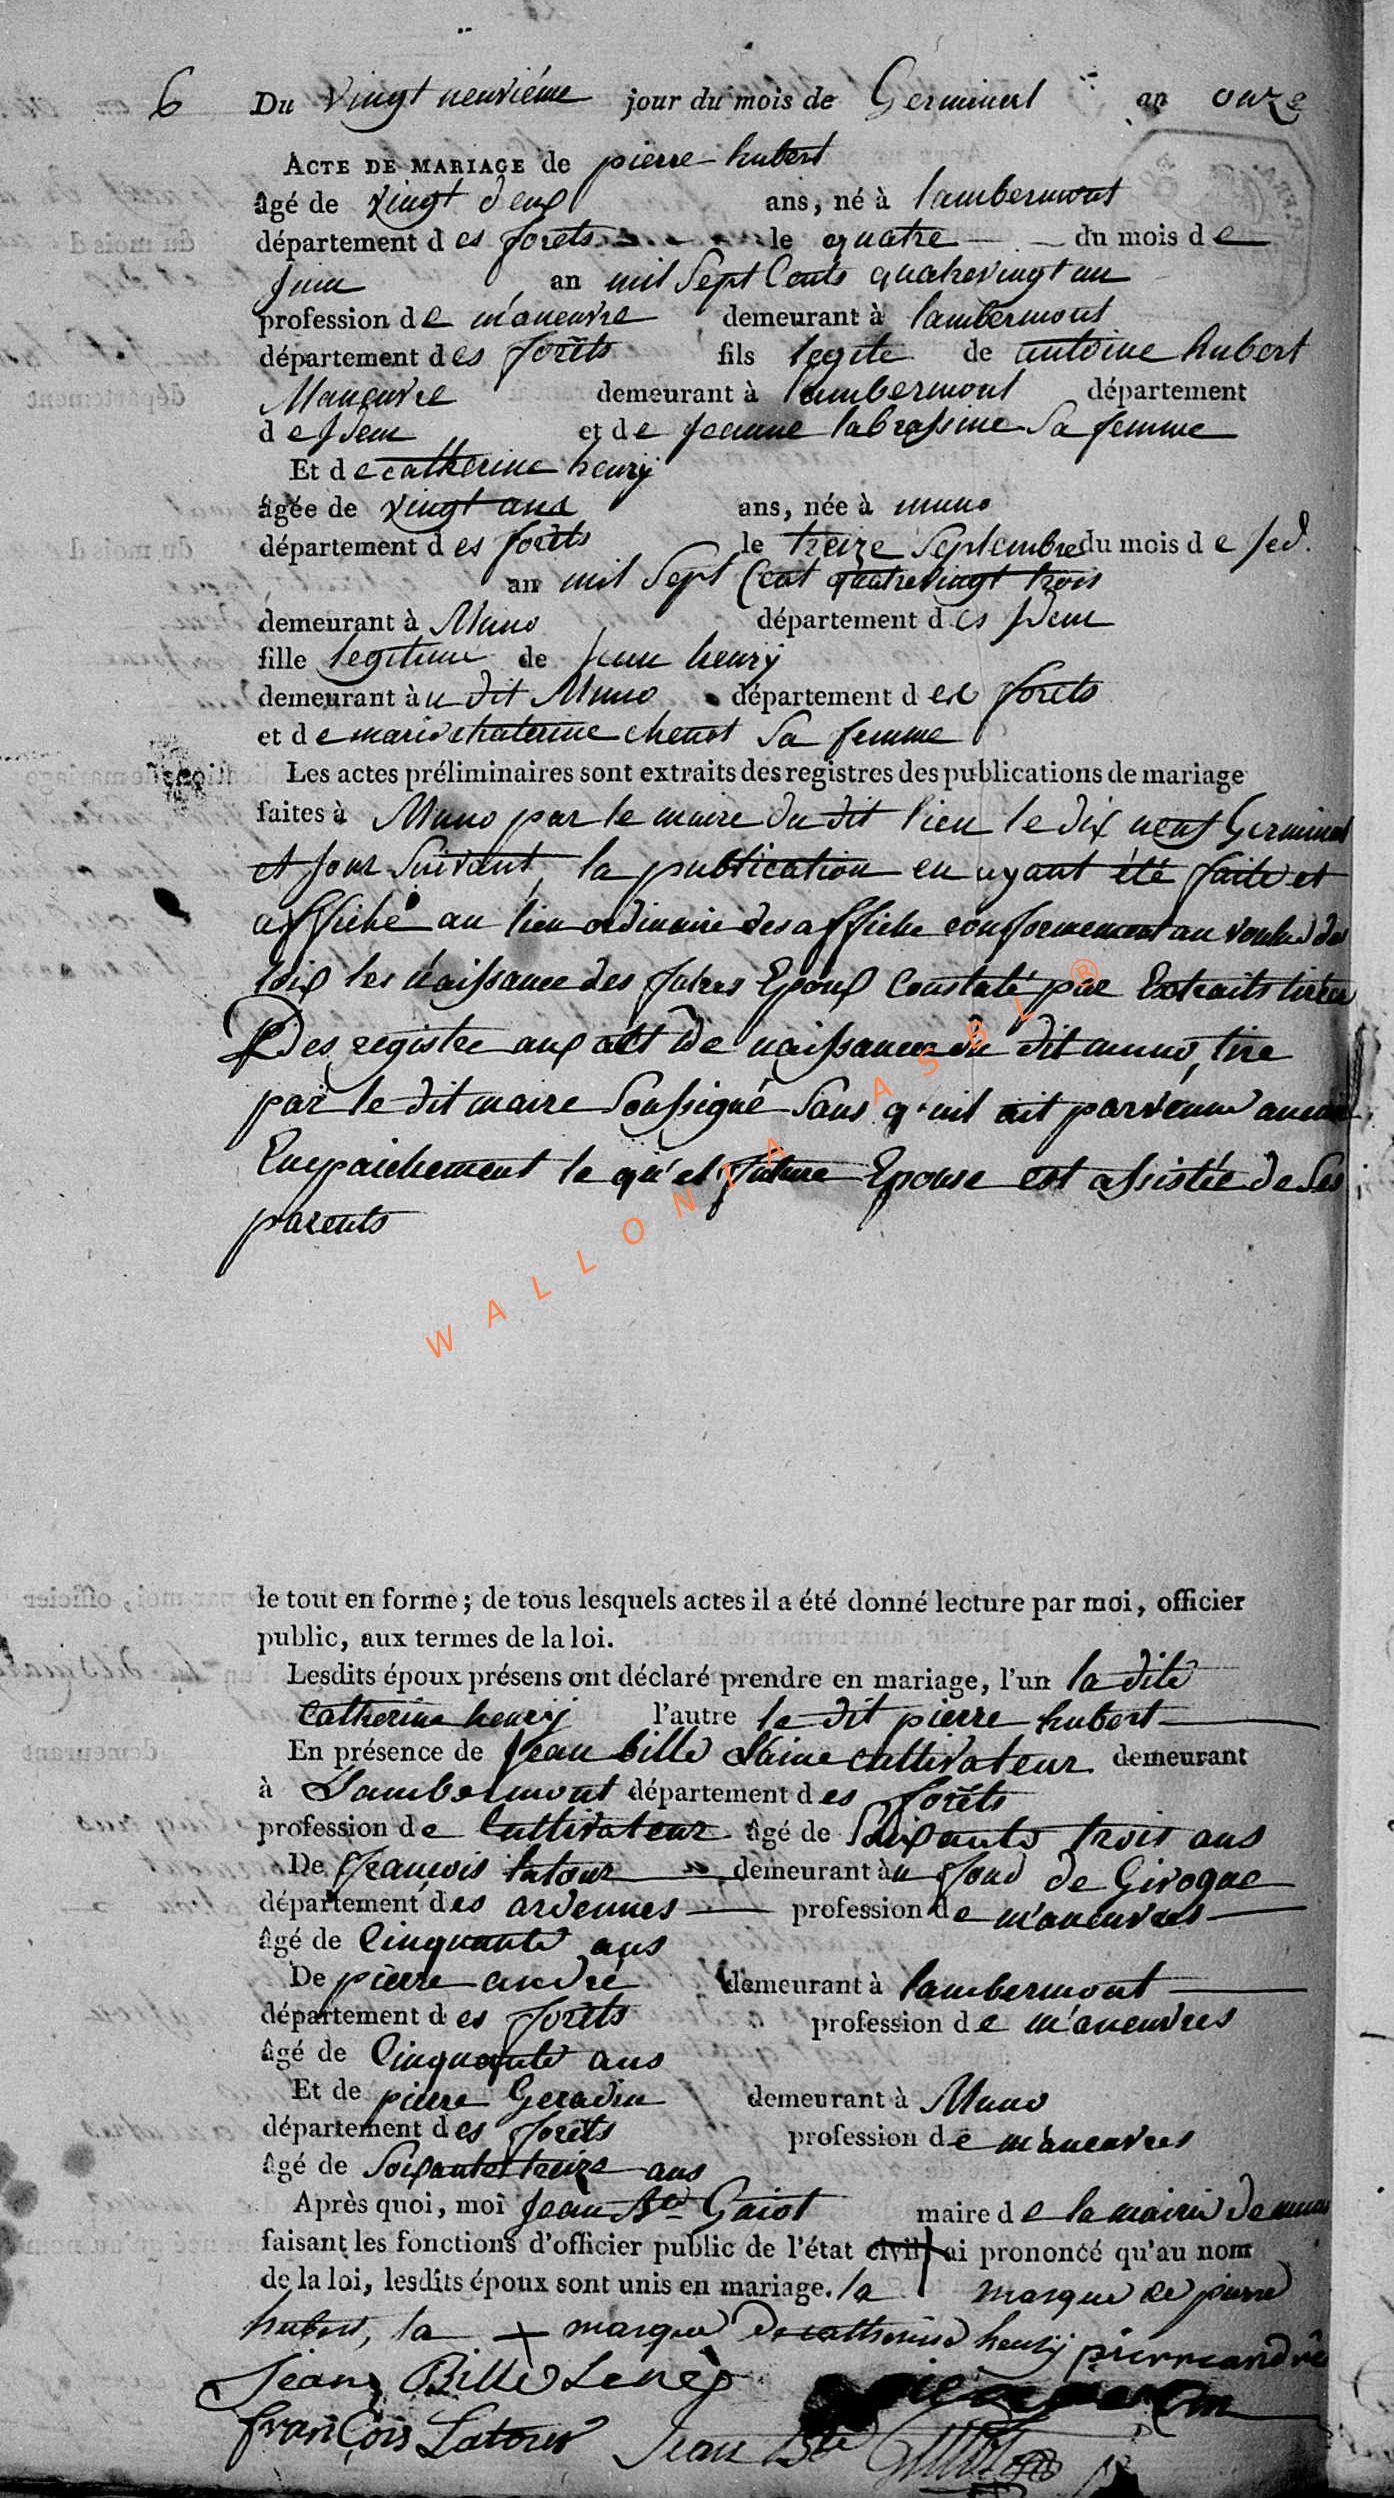 6 Du vingt neuviéme jour du mois de Germinal an onze
ACTE DE MARIAGE de pierre hubert
âgé de vingt deux ans, né à lambermont
département des forets le quatre du mois de
Juin an mil Sept Cents quatrevingt un
profession de maneuvre demeurant à lambermont
département des forêts fils legite de antoine hubert
Maneuvre demeurant à lambermont département
de jdem et de jeanne labrassine Sa femme
Et de catherine henrÿ
âgée de vingt ans ans, née à muno
département des forêts le treize Septembre du mois de sed.
an mil Sept Cent quatrevingt trois
demeurant à Muno département des jdem
fille legitime de Jean henrÿ
demeurant àu dit Muno département des forets
et de marie chaterine chenot Sa femme
Les actes préliminaires sont extraits des registres des publications de mariage
faites à Muno par le maire du dit lieu le dix neuf Germinal
et jour Suivant, la publication en ayant été faite et
affiché au lieu ordinaire des affiche conformement au voulue des
loix les naissance des futres Epoux Constaté par Extraits tirée
Des registre aux act de naissance du dit muno, tire
par le dit maire Soussigné Sans q'uil ait parvenue aucun
Empaichement le qu'el future Epouse est assistée de Ses
parents
WALLONIA ASBL ®
le tout en forme; de tous lesquels actes il a été donné lecture par moi, officier
public, aux termes de la loi.
Lesdits époux présens ont déclaré prendre en mariage, l'un la dite
Catherine henrÿ l'autre le dit pierre hubert
En présence de Jean bille L'aine cultivateur demeurant
à Lambermont département des forêts
profession de Cultivateur âgé de Soixante trois ans
De françois latour demeurant àu fond de Givogne
département des ardennes profession de m'aneuvres
âgé de Cinquante ans
De pierre andré demeurant à lambermont
département des forêts profession de m'aneuvres
âgé de Cinquante ans
Et de pierre Geradin demeurant à Muno
département des forêts profession de m'aneuvres
âgé de Soixante treize ans
Après quoi, moi Jean Bte Gaiot maire de la mairie de muno
faisant les fonctions d'officier public de l'état civil, ai prononcé qu'au nom
de la loi, lesdits époux sont unis en mariage. la + marque de pierre
hubert, la + marque de catherine henrÿ pierreandré
Jean Bille Lenez
françois Latour Jean Bte